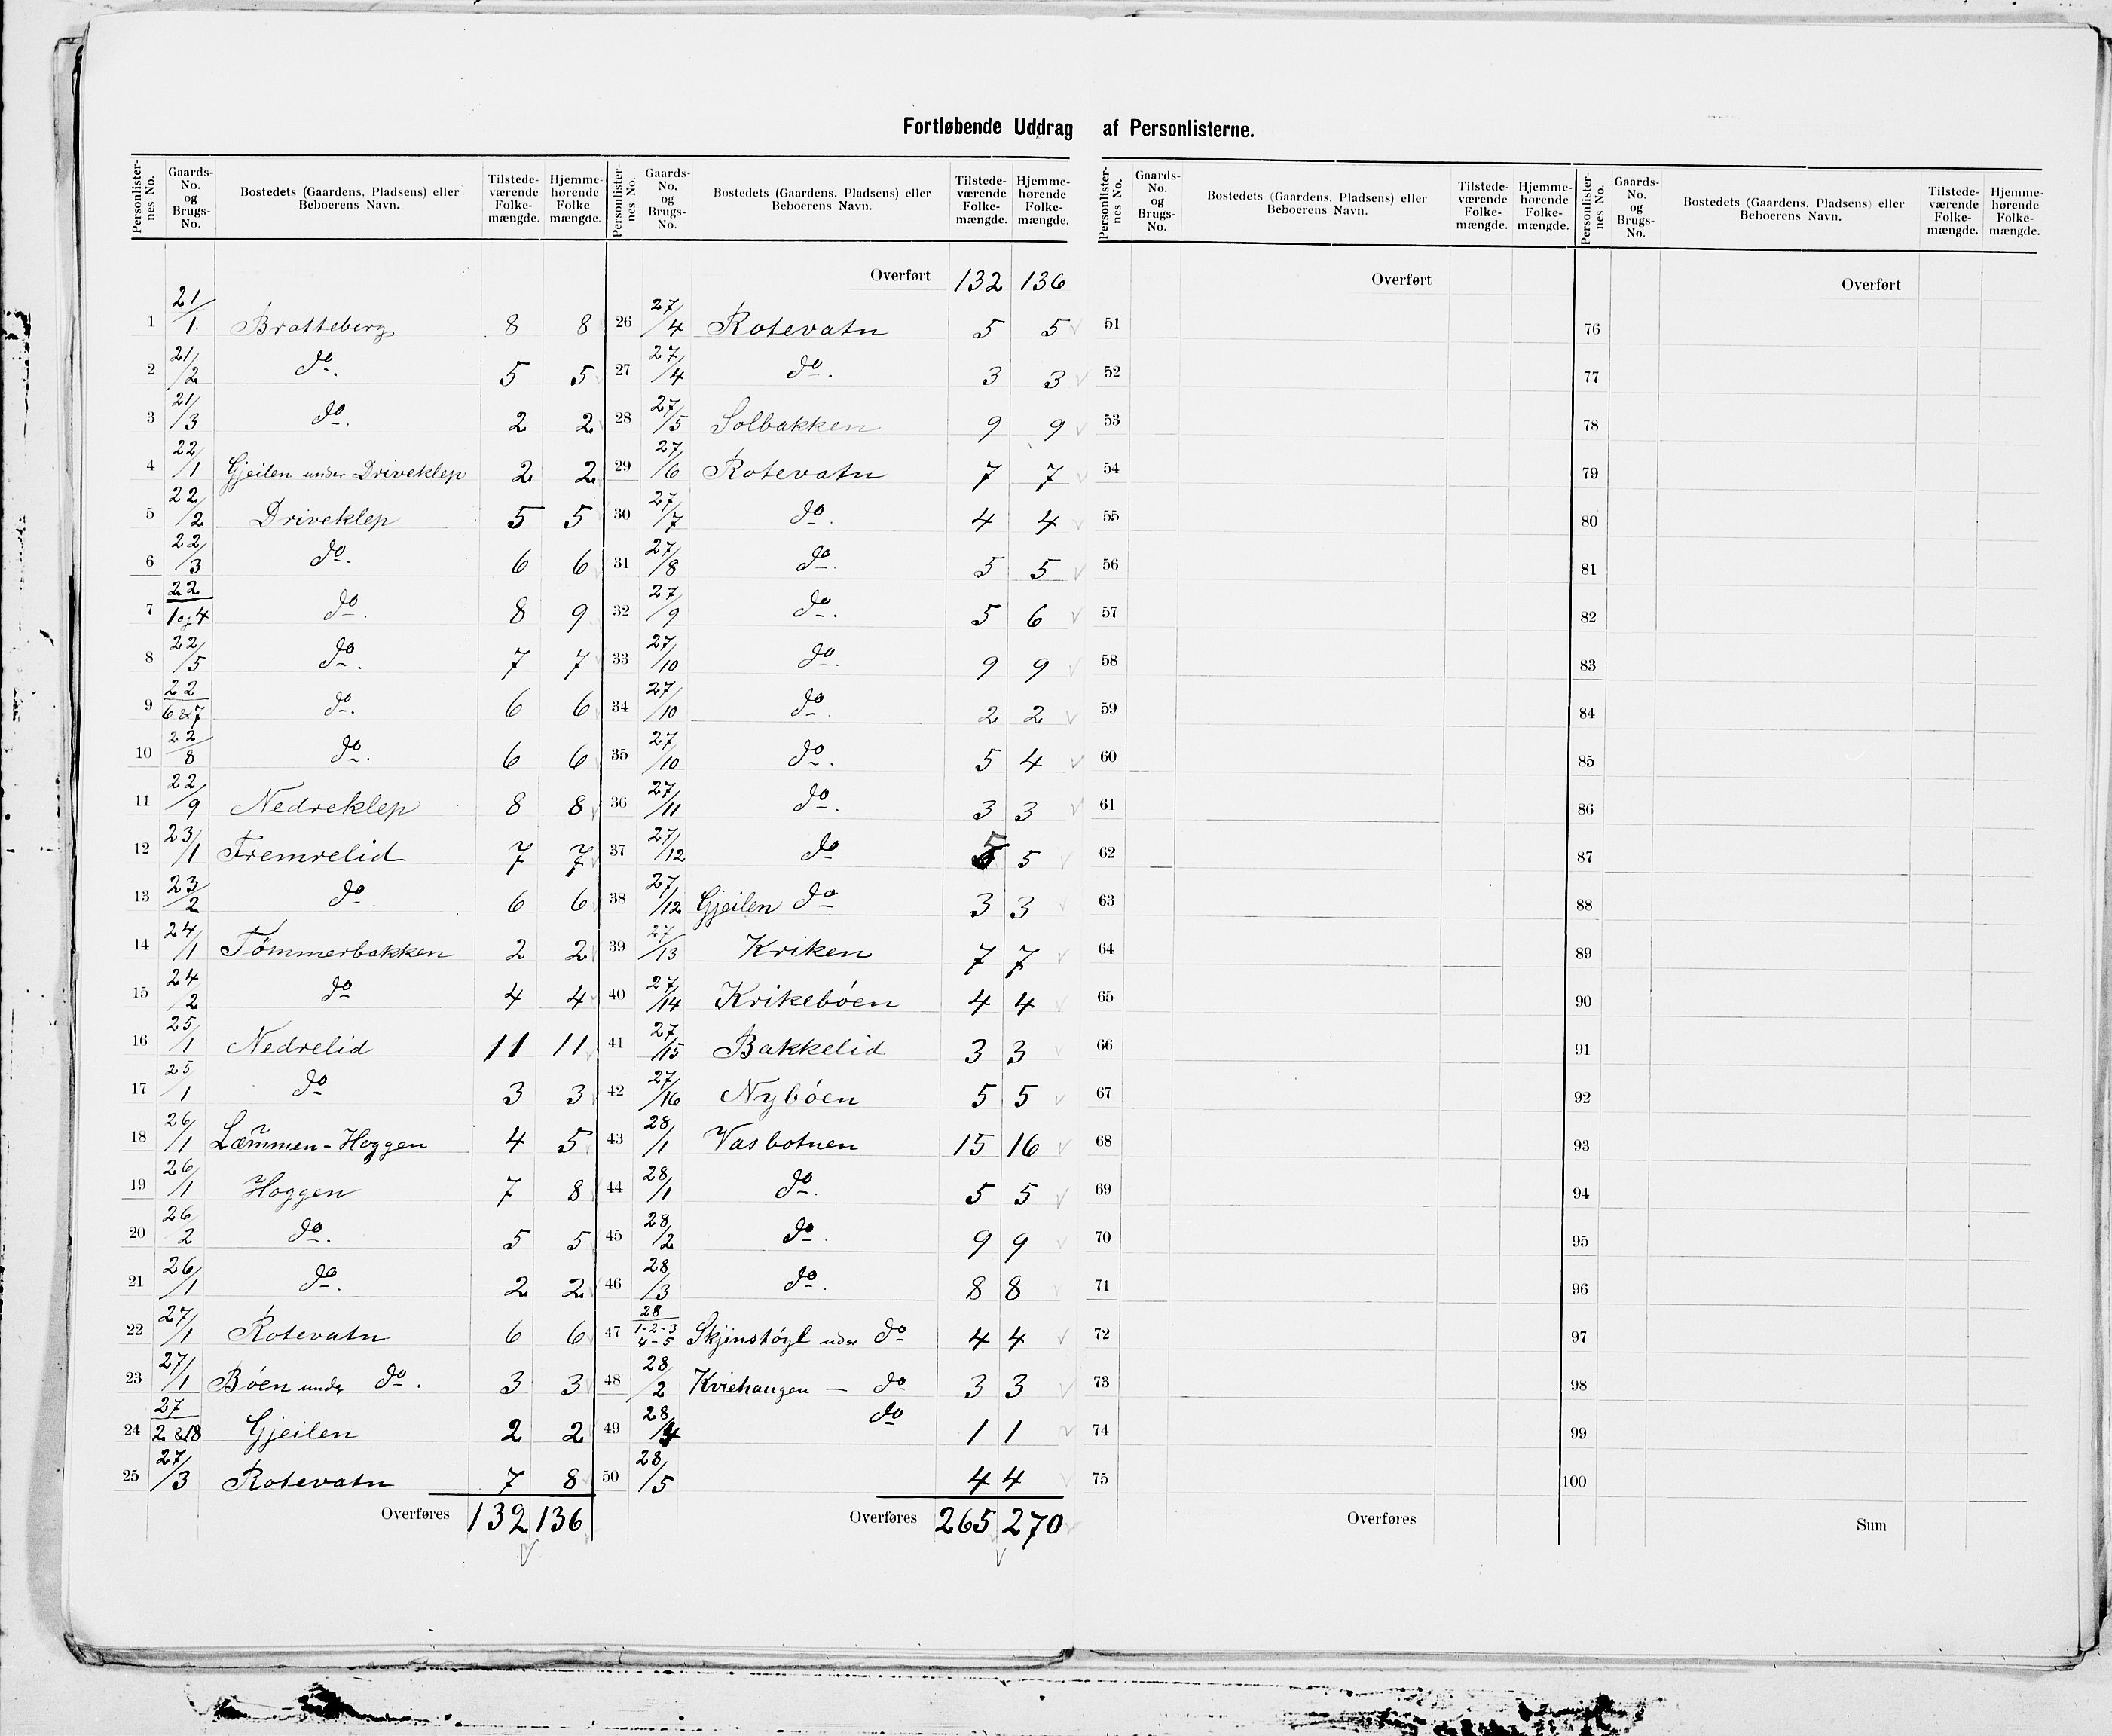 Fortløbende Uddrag af Personlisterne.
Personlisternes No. Gaards-No. og Brugs-No. Bostedets (Gaardens, Pladsens) eller Beboerens Navn. Tilstedeværende Folkemængde. Hjemmehørende Folkemængde.
1 21/1. Bratteberg 8 8
2 21/2 do. 5 5
3 21/3 do. 2 2
4 22/1 Gjeilen under Driveklep 2 2
5 22/2 Driveklep 5 5
6 22/3 do. 6 6
7 22/1 og 4 do. 8 9
8 22/5 do. 7 7
9 22/6 & 7 do. 6 6
10 22/8 do. 6 6
11 22/9 Nedreklep 8 8
12 23/1 Fremrelid 7 7
13 23/2 do 6 6
14 24/1 Tømmerbakken 2 2
15 24/2 do 4 4
16 25/1 Nedrelid 11 11
17 25/1 do 3 3
18 26/1 Læmmen-Hoggen 4 5
19 26/1 Hoggen 7 8
20 26/2 do. 5 5
21 26/1 do. 2 2
22 27/1 Rotevatn 6 6
23 27/1 Bøen under do. 3 3
24 27/2 & 18 Gjeilen 2 2
25 27/3 Rotevatn 7 8
Overføres 132 136
Personlisternes No. Gaards-No. og Brugs-No. Bostedets (Gaardens, Pladsens) eller Beboerens Navn. Tilstedeværende Folkemængde. Hjemmehørende Folkemængde.
Overført 132 136
26 27/4 Rotevatn 5 5
27 27/4 do. 3 3
28 27/5 Solbakken 9 9
29 27/6 Rotevatn 7 7
30 27/7 do. 4 4
31 27/8 do 5 5
32 27/9 do. 5 6
33 27/10 do. 9 9
34 27/10 do. 2 2
35 27/10 do. 5 4
36 27/11 do. 3 3
37 27/12 do 5 5
38 27/12 Gjeilen do 3 3
39 27/13 Kriken 7 7
40 27/14 Krikebøen 4 4
41 27/15 Bakkelid 3 3
42 27/16 Nybøen 5 5
43 28/1 Vasbotnen 15 16
44 28/1 do. 5 5
45 28/2 do. 9 9
46 28/3 do. 8 8
47 28/1-2-3 4-5 Skjinstøyl under do 4 4
48 28/2 Kviehaugen — do 3 3
49 28/4 do 1 1
50 28/5 4 4
Overføres 265 270
Personlisternes No. Gaards-No. og Brugs-No. Bostedets (Gaardens, Pladsens) eller Beboerens Navn. Tilstedeværende Folkemængde. Hjemmehørende Folkemængde.
Overført
51
52
53
54
55
56
57
58
59
60
61
62
63
64
65
66
67
68
69
70
71
72
73
74
75
Overføres
Personlisternes No. Gaards-No. og Brugs-No. Bostedets (Gaardens, Pladsens) eller Beboerens Navn. Tilstedeværende Folkemængde. Hjemmehørende Folkemængde.
Overført
76
77
78
79
80
81
82
83
84
85
86
87
88
89
90
91
92
93
94
95
96
97
98
99
100
Sum